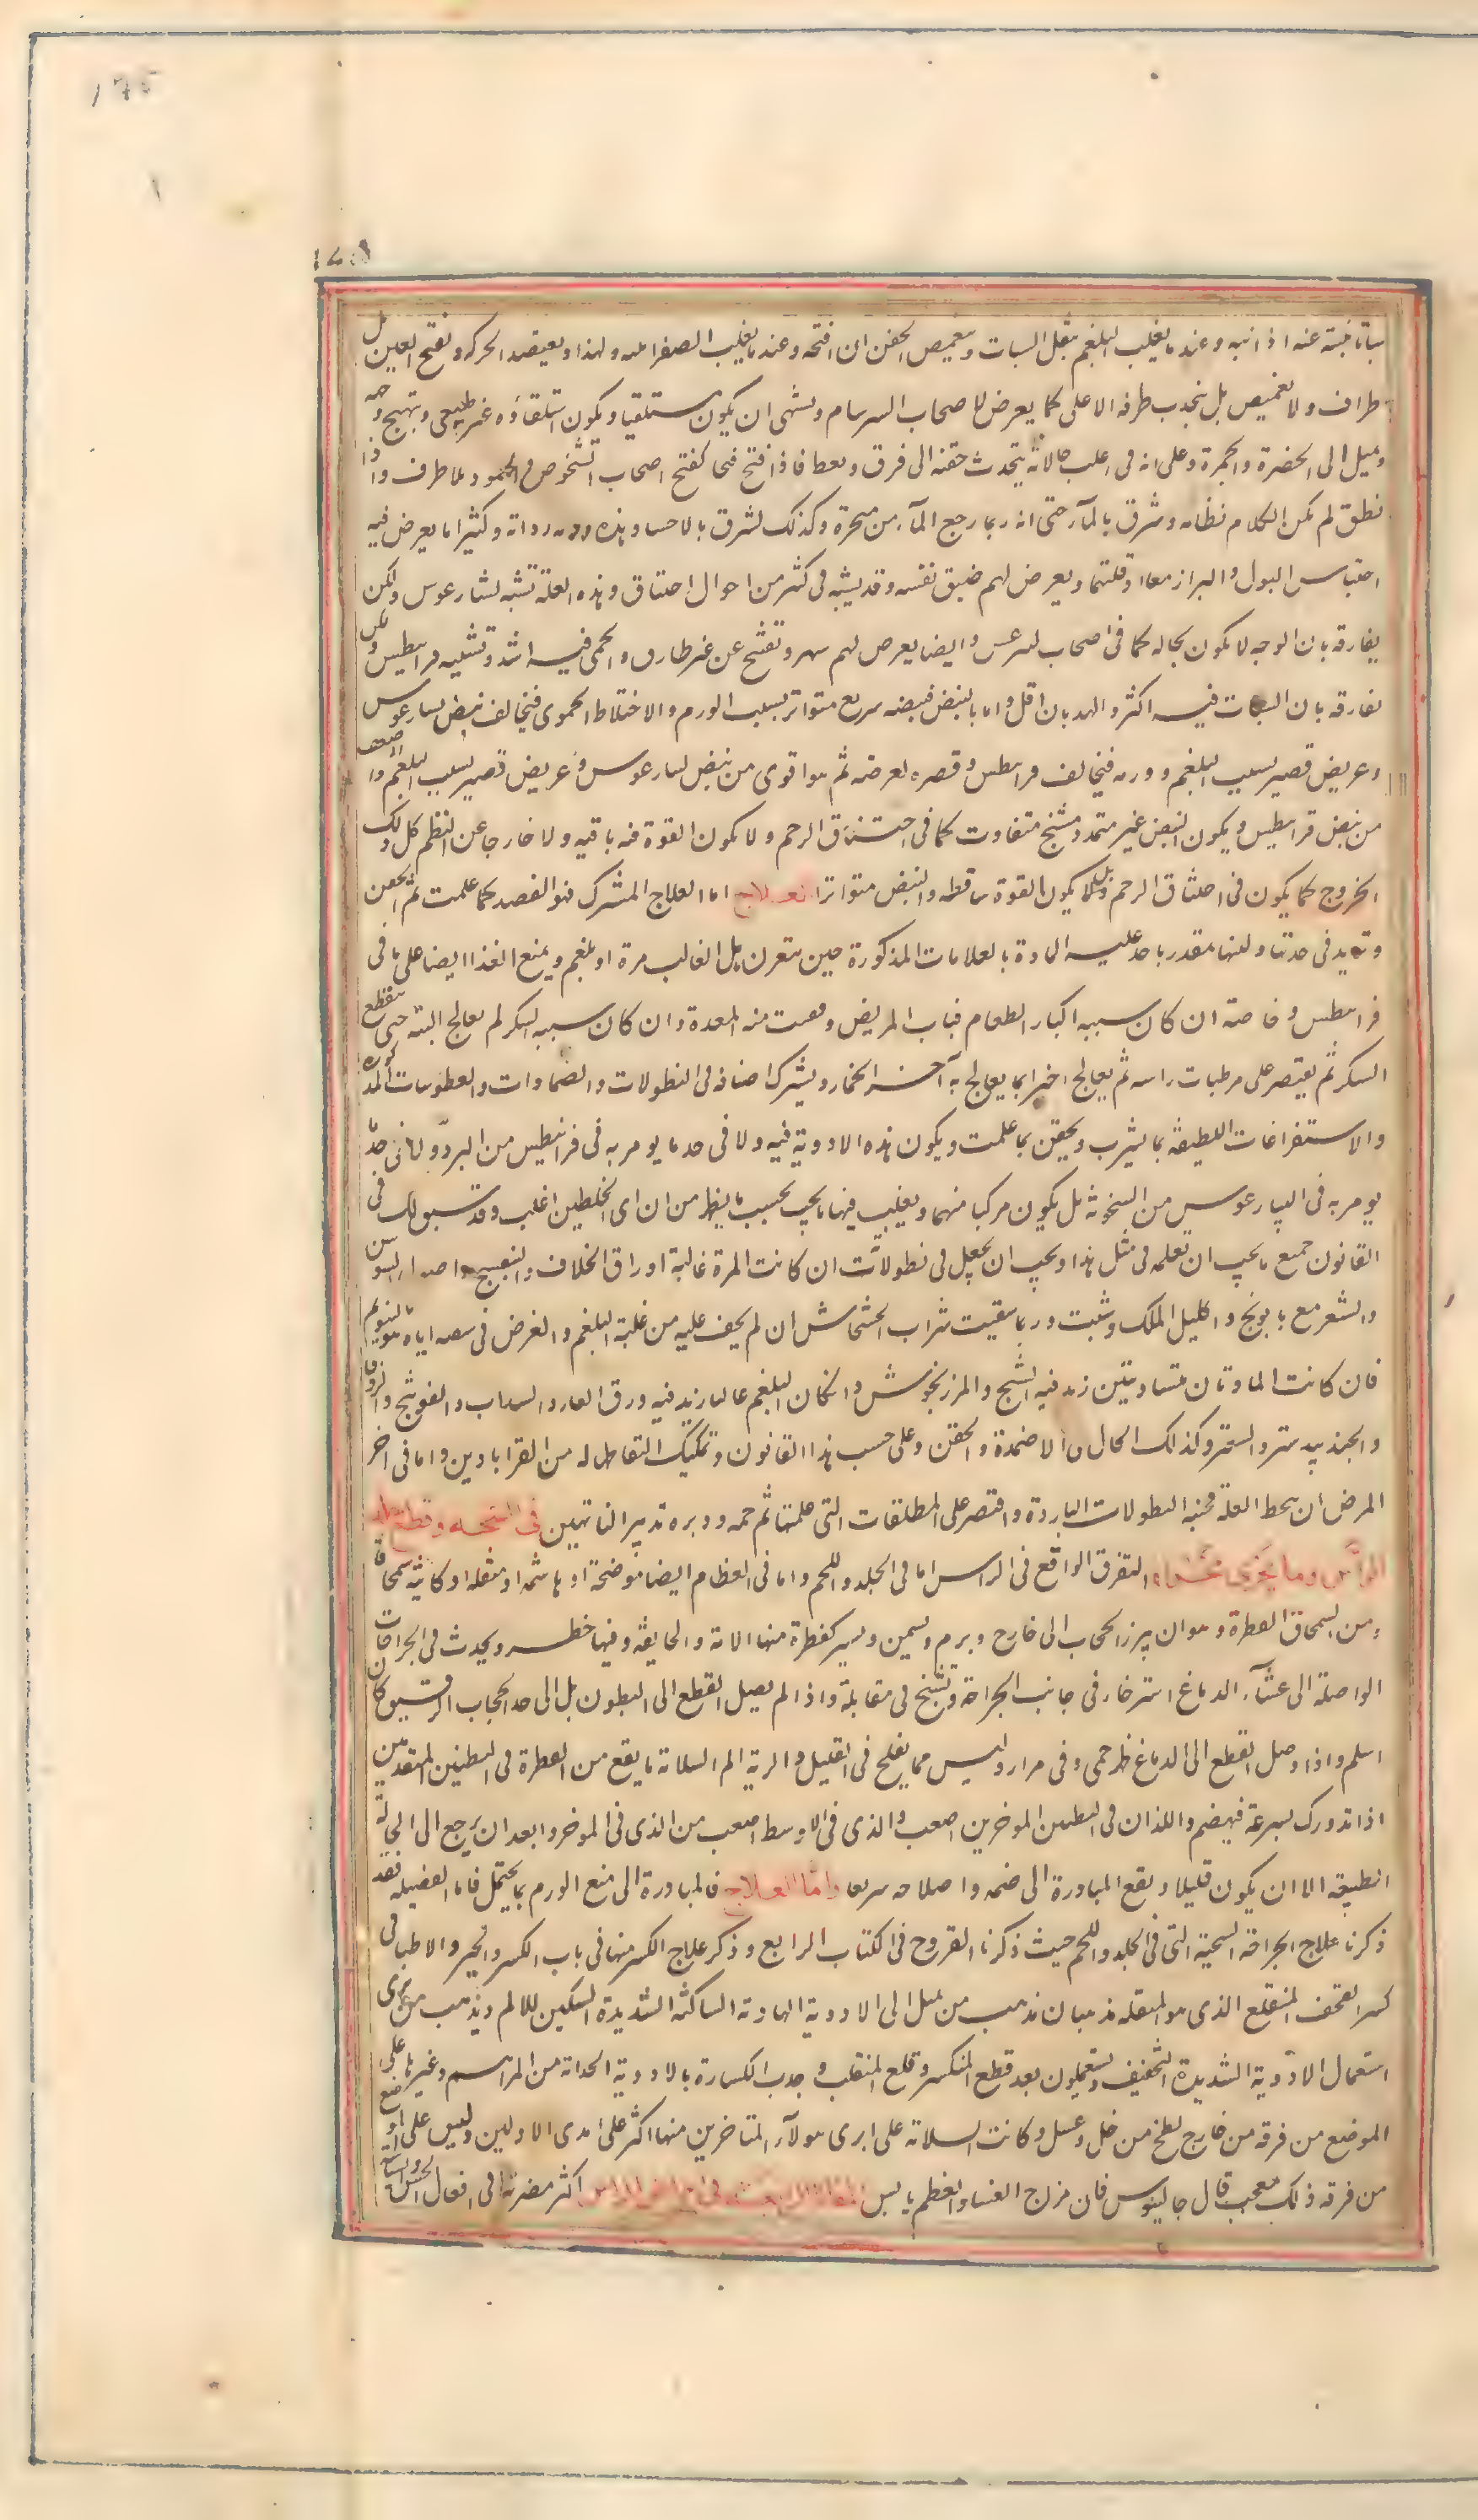 سباتا نبته عنه اذا نبه وعند ما يغلب البلغم يثقل السبات وتغميض الجفن ان افتحه وعند ما يغلب الصفرا ولهذا وبعيقه الحركه وتفتح العين
طراف ولا تغميض بل ينجذب طرفه الاعلى كما يعرض لاصحاب السرسام ويشهى ان يكون مستلقيا ويكون استلقاؤه غير طبيعى وتبهج وجهه
وتميل الى الخضرة والحمرة وعلى انه فى اغلب حالاته فاذا فتح فتحا كفتح اصحاب الشخوص والجمود بلا طرف واذا
نطق لم يكن لكلام نظام ويشرق بالمآء حتى انه ربما رجع المآء من منخره وكذلك يشرق بالاحساء وهذه وكثيرا ما يعرض فيه
احتباس البول والبراز معا او قلتهما ويعرض لهم ضيق نفس وقد يشبه فى كثير من احوال اختناق وهذه العلة تشبه ليثارعوس ولكن
يفارقه بان الوجه لا يكون بحاله كما فى اصحاب ليثرعس وايضا يعرض لهم سهر وتفتح عن غير طارف والحمى فيه اشد وتشبه قرانيطس ولكن
يفارقه بان السبات فيه اكثر والهذيان اقل واما بالنبض فنبضه سريع متواتر بسبب الورم والاختلاط الحموى فيخالف نبض ليثارعوس
وعريض قصير بسبب البلغم وورمه فيخالف قرانيطس وقصره لعرضه ثم هو اقوى من نبض ليثارعوس وعريض قصير بسبب البلغم واضعف
من نبض قرانيطس ويكون النبض غير متمدد متشنج متفاوت كما فى اختناق الرحم ولا يكون القوة فيه باقيه ولا خارجا عن النظم كل ذلك
الخروج كما يكون فى اختناق الرحم ولا يكون القوة ساقطه والنبض متواترا العلاج اما العلاج المشترك فهو الفصد كما علمت ثم الحقن
وتزيد فى حدتها ولينها بقدر ما تدل عليه المادة بالعلامات المذكورة حين يتعرف هل الغالب مرة او بلغم ويمنع الغذا ايضا على ما فى
قرانيطس وخاصة ان كان سببه اكثار الطعام فباب المريض ونقيت منه المعدة وان كان سببه السكر لم يعالج البتة حتى ينقطع
السكر ثم يقتصر على مرطبات راسه ثم يعالج اخيرا بما يعالج به آخر الخمار ويشترك اصنافه فى النطولات والضمادات والعطوسات المذكورة
والاستفراغات اللطيفة بما يشرب ويحقن بما علمت ويكون هذه الادوية فيه ولا فى حد ما يومر به فى قرانيطيس من البرد ولا فى حد ما
يومر به فى ليثارعوس من السخونة بل يكون مركبا منهما ويغلب فيها ما يجب بحسب ما يظهر من ان اى الخلطين اغلب وقد سبق لك فى
القانون جميع ما يجب ان تعلمه فى مثل هذا ويجب ان يجعل فى نطولاته ان كانت المرة غالبة اوراق الخلاف والبنفسج واصل السوسن
والشعير مع بابونج واكليل الملك وشبت وربما سقيت شراب الخشخاش ان لم يخف عليه من غلبة البلغم والغرض فى سقيه اياه هو التنويم
فان كانت المادتان متساويتين زيد فيه الشيح والمرزنجوش وان كان البلغم غالبا زيد فيه ورق الغار والسداب والفوتنج والزوفا
والجندبيدستر والسعتر وكذلك الحال فى الاضمدة والحقن وعلى حسب هذا القانون ويمكنك التقاطه له من القراباذين واما فى اخر
المرض ان ينحط العلة فجنبه النطولات الباردة واقتصر على الملطفات التى علمتها ثم حمه ودبره تدبير الناقهين فى الشجه وقطع جلد
الرأس وما يجرى مجراه التفرق الواقع فى الراس اما فى الجلد واللحم واما فى العظام ايضا موضحة او هاشمه او منقله او كائنه سمحاقا
ومن السمحاق الفطرة وهو ان يبرز الحجاب الى خارج ويرم ويسمن ويصير كفطرة منها الامه والجايفه وفيها خطر ويحدث فى الجراحات
الواصلة الى غشآء الدماغ استرخاء فى جانب الجراحة وتشنج فى مقابله واذا لم يصل القطع الى البطون بل الى حد الحجاب الرقيق كان
اسلم واذا وصل القطع الى الدماغ ظهر حمى وقى مرار وليس مما يفلح فى القليل واقربه الى السلامة ما يقع من القطرة فى البطنين المقدمين
اذا تدورك بسرعة فيهضم واللذان فى البطين الموخرين اصعب والذى فى الاوسط اصعب من الذى فى الموخر وابعد ان يرجع الى الحالة
الطبيعيه الا ان يكون قليلا ويقع المبادرة الى ضمه واصلاحه سريعا واما العلاج فالمبادرة الى منع الورم بما يحتمل فاما التفصيله فقد
ذكرنا علاج الجراحة الشجية التى فى الجلد واللحم حيث ذكرنا القروح فى الكتاب الرابع وذكر علاج الكسر منها فى باب الكسر والجبر والاطبا فى
كسر القحف المنقلع الذى هو المنقله مذهبان مذهب من يميل الى الادوية الهادية الساكنه الشديدة التسكين للالم ومذهب من يرى
استعمال الادوية الشديدة التجفيف ويستعملون بعد قطع المنكسر وقلع المنقلب وجذب الكسارة بالادوية الجذابة من المراهم وغيرها على
الموضع من فرقه من خارج لطخ من خل وعسل وكانت السلامة على ايدى هولآء المتاخرين منها اكثر على ايدى الاولين وليس على
من فرقه ذلك بعجب قال جالينوس فان مزاج الغشاء والعظم يابس المقالة الرابعة فى امراض الراس اكثر مضرتها فى افعال الحس